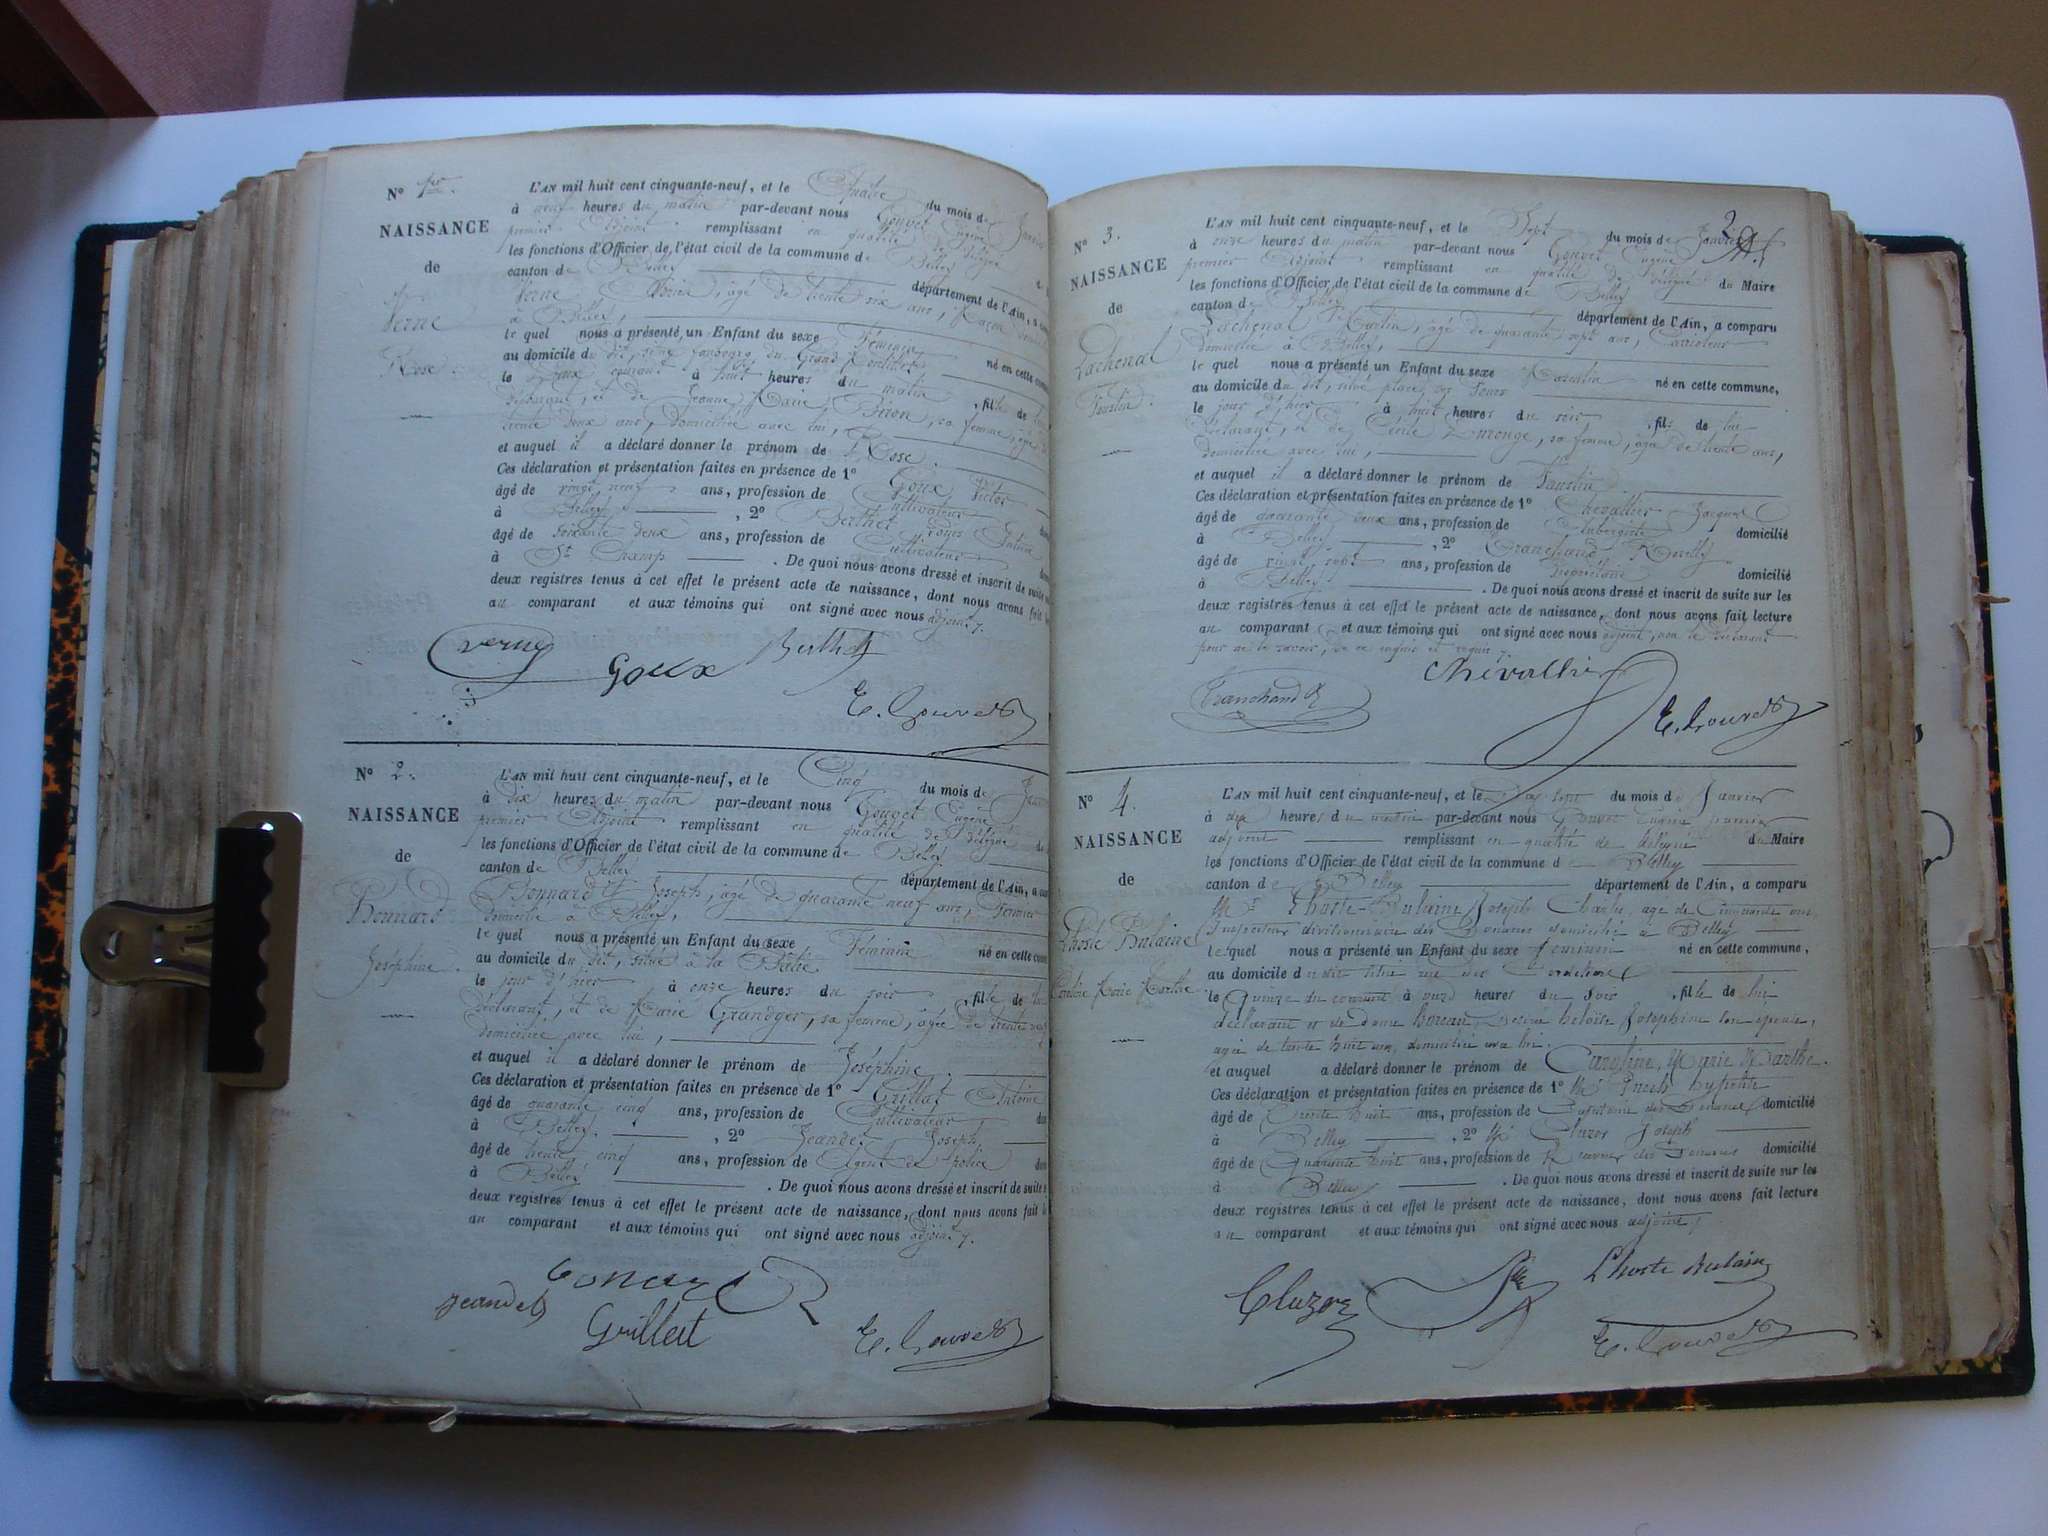 N° 1er.
NAISSANCE
de
Verne
Rose
L'AN mil huit cent cinquante-neuf, et le Quatre du mois de
à neuf heures du matin par-devant nous Gouvet Eugène
premier Adjoint remplissant en qualité de Délégué
les fonctions d'Officier de l'état civil de la commune de Belley
canton de Belley département de l'Ain, a
Verne âgé de trente six ans, Maçon
à Belley,
le quel nous a présenté un Enfant du sexe Féminin
au domicile du dit, situé faubourg du Grand né en cette
le Deux courant à huit heures du matin , fille de
déclarant, et de Jeanne Marie sa femme, âgée
trente deux ans, domiciliée avec lui,
et auquel il a déclaré donner le prénom de Rose.
Ces déclaration et présentation faites en présence de 1° Goux Victor
âgé de vingt neuf ans, profession de Cultivateur
à Belley , 2° Berthet
âgé de soixante deux ans, profession de Cultivateur
à St Champ . De quoi nous avons dressé et inscrit de suite
deux registres tenus à cet effet le présent acte de naissance, dont nous avons fait
au comparant et aux témoins qui ont signé avec nous adjoint.
Verne
Goux Berthet
E. Gouvet
N° 2.
NAISSANCE
de
Bonnard
Joséphine.
L'AN mil huit cent cinquante-neuf, et le Cinq du mois de
à dix heures du matin par-devant nous Gouvet Eugène
premier Adjoint remplissant en qualité de Délégué
les fonctions d'Officier de l'état civil de la commune de Belley
canton de Belley département de l'Ain, a
Bonnard Joseph, âgé de quarante neuf ans, Fermier
domicilié à Belley,
le quel nous a présenté un Enfant du sexe Féminin
au domicile du dit, situé à la né en cette
le jour d'hier à onze heures du soir , fille de lui
déclarant, et de Marie Grandger, sa femme, âgée de trente
domiciliée avec lui,
et auquel il a déclaré donner le prénom de Joséphine.
Ces déclaration et présentation faites en présence de 1° Grillat Antoine
âgé de quarante cinq ans, profession de Cultivateur
à Belley , 2° Jeandet Joseph,
âgé de trente cinq ans, profession de Agent de police
à Belley . De quoi nous avons dressé et inscrit de suite
deux registres tenus à cet effet le présent acte de naissance, dont nous avons fait
au comparant et aux témoins qui ont signé avec nous adjoint.
Bonard
Jeandet
Grillat
E. Gouvet
2
N° 3.
NAISSANCE
de
Lachenal
Faustin.
L'AN mil huit cent cinquante-neuf, et le Sept du mois de Janvier
à onze heures du matin par-devant nous Gouvet Eugène
premier Adjoint remplissant en qualité de Délégué du Maire
les fonctions d'Officier de l'état civil de la commune de Belley
canton de Belley département de l'Ain, a comparu
Lachenal Martin, âgé de quarante sept ans,
domicilié à Belley,
le quel nous a présenté un Enfant du sexe Masculin né en cette commune,
au domicile du dit, situé place des
le jour d'hier à huit heures du soir , fils de lui
déclarant, et de sa femme, âgée de trente ans,
domiciliée avec lui,
et auquel il a déclaré donner le prénom de Faustin.
Ces déclaration et présentation faites en présence de 1° Chevallier Jacques
âgé de quarante deux ans, profession de Aubergiste domicilié
à Belley , 2° Tranchand
âgé de vingt sept ans, profession de Propriétaire domicilié
à Belley . De quoi nous avons dressé et inscrit de suite sur les
deux registres tenus à cet effet le présent acte de naissance, dont nous avons fait lecture
au comparant et aux témoins qui ont signé avec nous adjoint, non le déclarant
pour ne le savoir, de ce enquis et requis.
Chevallier
Tranchand
E. Gouvet
N° 4.
NAISSANCE
de
Lhoste Bulaine
Caroline Marie Marthe
L'AN mil huit cent cinquante-neuf, et le Dix sept du mois de Janvier
à dix heures du matin par-devant nous Gouvet Eugène premier
adjoint remplissant en qualité de délégué du Maire
les fonctions d'Officier de l'état civil de la commune de Belley
canton de Belley département de l'Ain, a comparu
Mr Lhoste-Bulaine Joseph Charles, agé de Cinquante ans,
Inspecteur divisionnaire des Douanes domicilié à Belley
le quel nous a présenté un Enfant du sexe féminin né en cette commune,
au domicile du dit situé rue des Cordeliers
le Quinze du courant à onze heures du soir , fille de lui
déclarant et de dame Désirée héloïse Joséphine son épouse,
agée de trente huit ans, domiciliée avec lui.
et auquel a déclaré donner le prénom de Caroline, Marie Marthe.
Ces déclaration et présentation faites en présence de 1° Mr hypolite
âgé de Trente huit ans, profession de Capitaine des Douanes domicilié
à Belley , 2° Mr Cluzer Joseph
âgé de Quarante huit ans, profession de Receveur des Douanes domicilié
à Belley . De quoi nous avons dressé et inscrit de suite sur les
deux registres tenus à cet effet le présent acte de naissance, dont nous avons fait lecture
au comparant et aux témoins qui ont signé avec nous adjoint.
Lhoste Bulaine
Cluzer
E. Gouvet